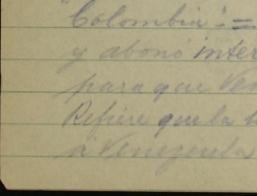 "Colombia". =
y abonó inter
para que Ven
Refiere que la
a Venezuela